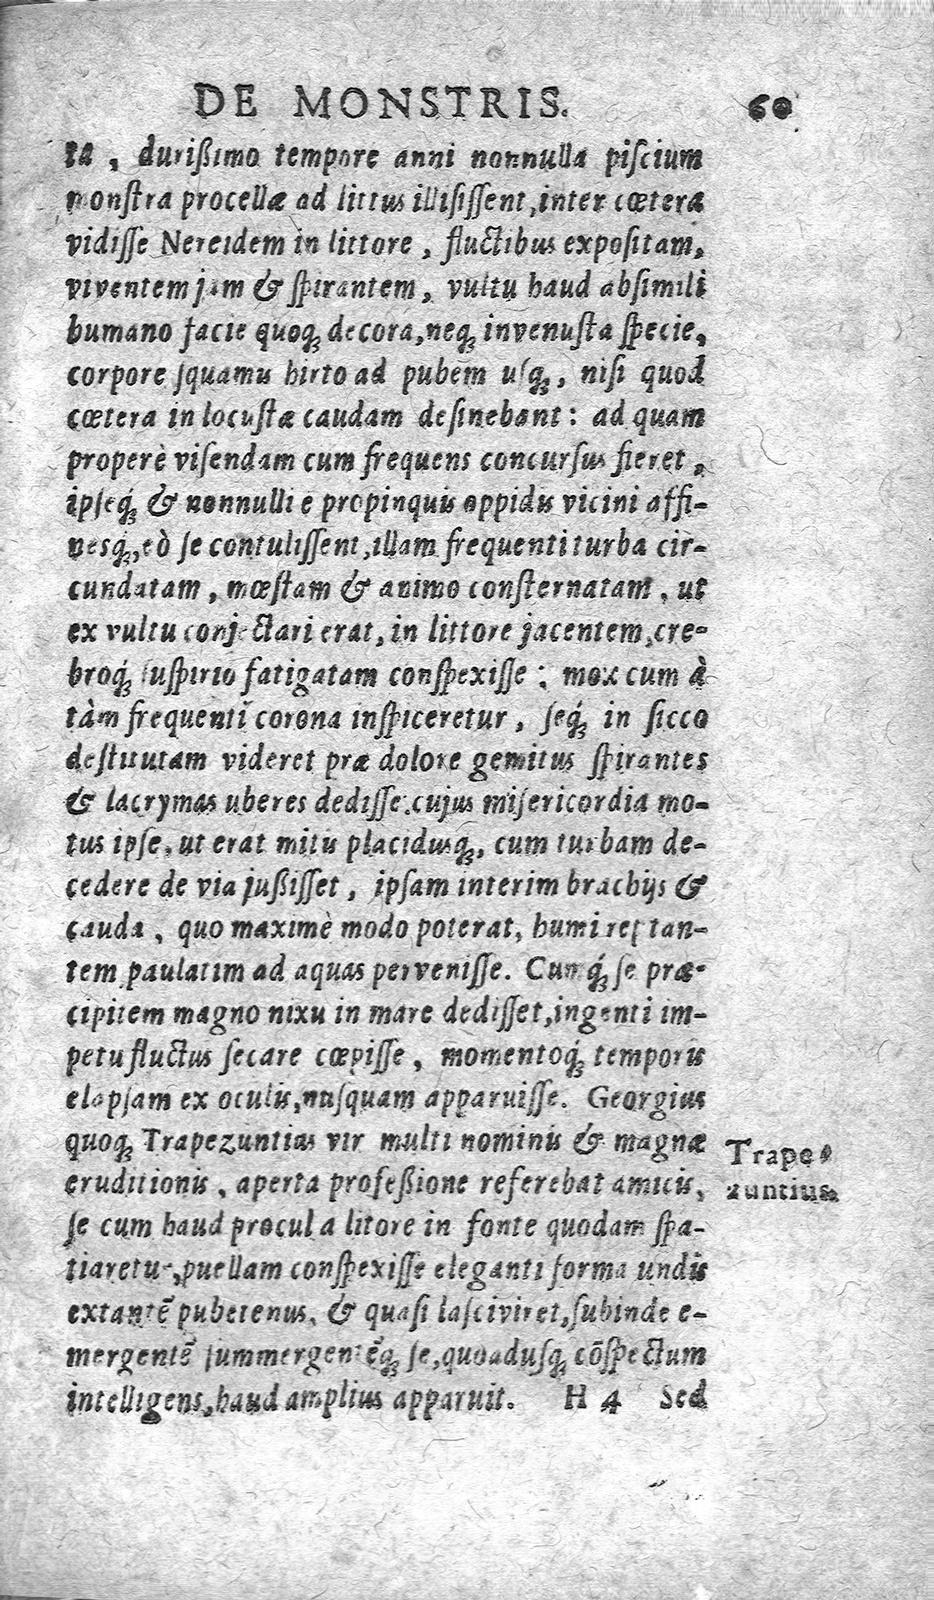 DE MONSTRIS. 60
ta, durißimo tempore anni nonnulla piſcium
monſtra procellæ ad littus illiſiſſent, inter cœtera
vidiſſe Nereidem in littore, fluctibus expoſitam,
viventem jam & ſpirantem, vultu haud abſimili
humano facie quoq; decora, neq; invenuſta ſpecie,
corpore ſquamis hirto ad pubem uſq;, niſi quod
cœtera in locuſtæ caudam deſinebant: ad quam
properè viſendam cum frequens concurſus fieret,
ipſeq́; & nonnulli e propinquis oppidis vicini affi-
nesq́;, eò ſe contuliſſent, illam frequenti turba cir-
cundatam, mœſtam & animo conſternatam, ut
ex vultu conjectari erat, in littore jacentem, cre-
broq́; ſuſpirio fatigatam conſpexiſſe; mox cum à
tàm frequenti corona inſpiceretur, ſeq́; in ſicco
deſtitutam videret præ dolore gemitus ſpirantes
& lacrymas uberes dediſſe: cujus miſericordia mo-
tus ipſe, ut erat mitis placidusq́;, cum turbam de-
cedere de via jußiſſet, ipſam interim brachijs &
cauda, quo maximè modo poterat, humi reptan-
tem paulatim ad aquas perveniſſe. Cumq́; ſe præ-
cipitem magno nixu in mare dediſſet, ingenti im-
petu fluctus ſecare cœpiſſe, momentoq́; temporis
elapſam ex oculis, nuſquam apparuiſſe. Georgius
quoq; Trapezuntius vir multi nominis & magnæ
eruditionis, aperta profeßione referebat amicis,
ſe cum haud procul a litore in fonte quodam ſpa-
tiaretur, puellam conſpexiſſe eleganti forma undis
extantē pubetenus, & quaſi laſciviret, ſubinde e-
mergentē ſummergentēq; ſe, quoaduſq; cōſpectum
intelligens, haud amplius apparuit. H 4 Sed
Trape-
zuntius